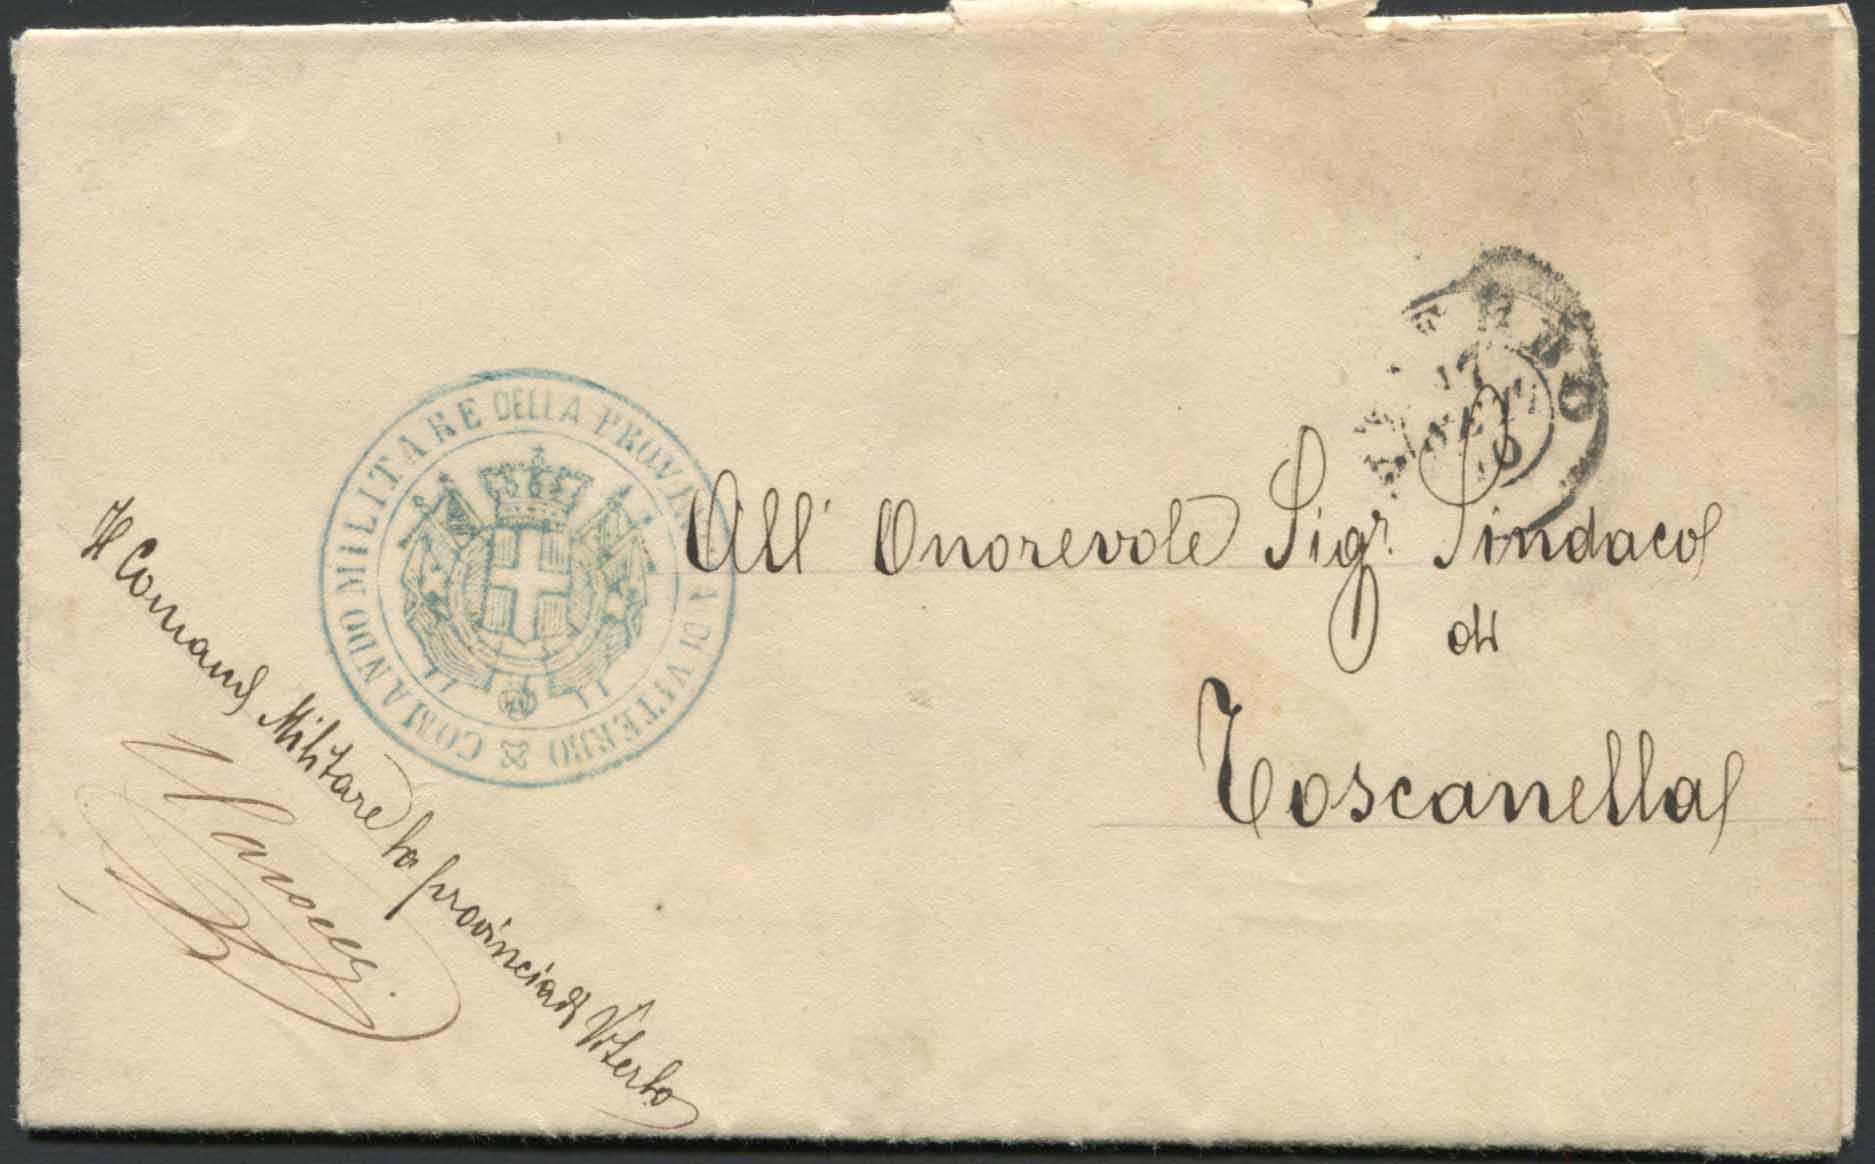 COMANDO MILITARE DELLA PROVINCIA DI VITERBO
All' Onorevole Sigr. Sindaco
di
Toscanella
Il Comand Militare la provincia di Viterbo